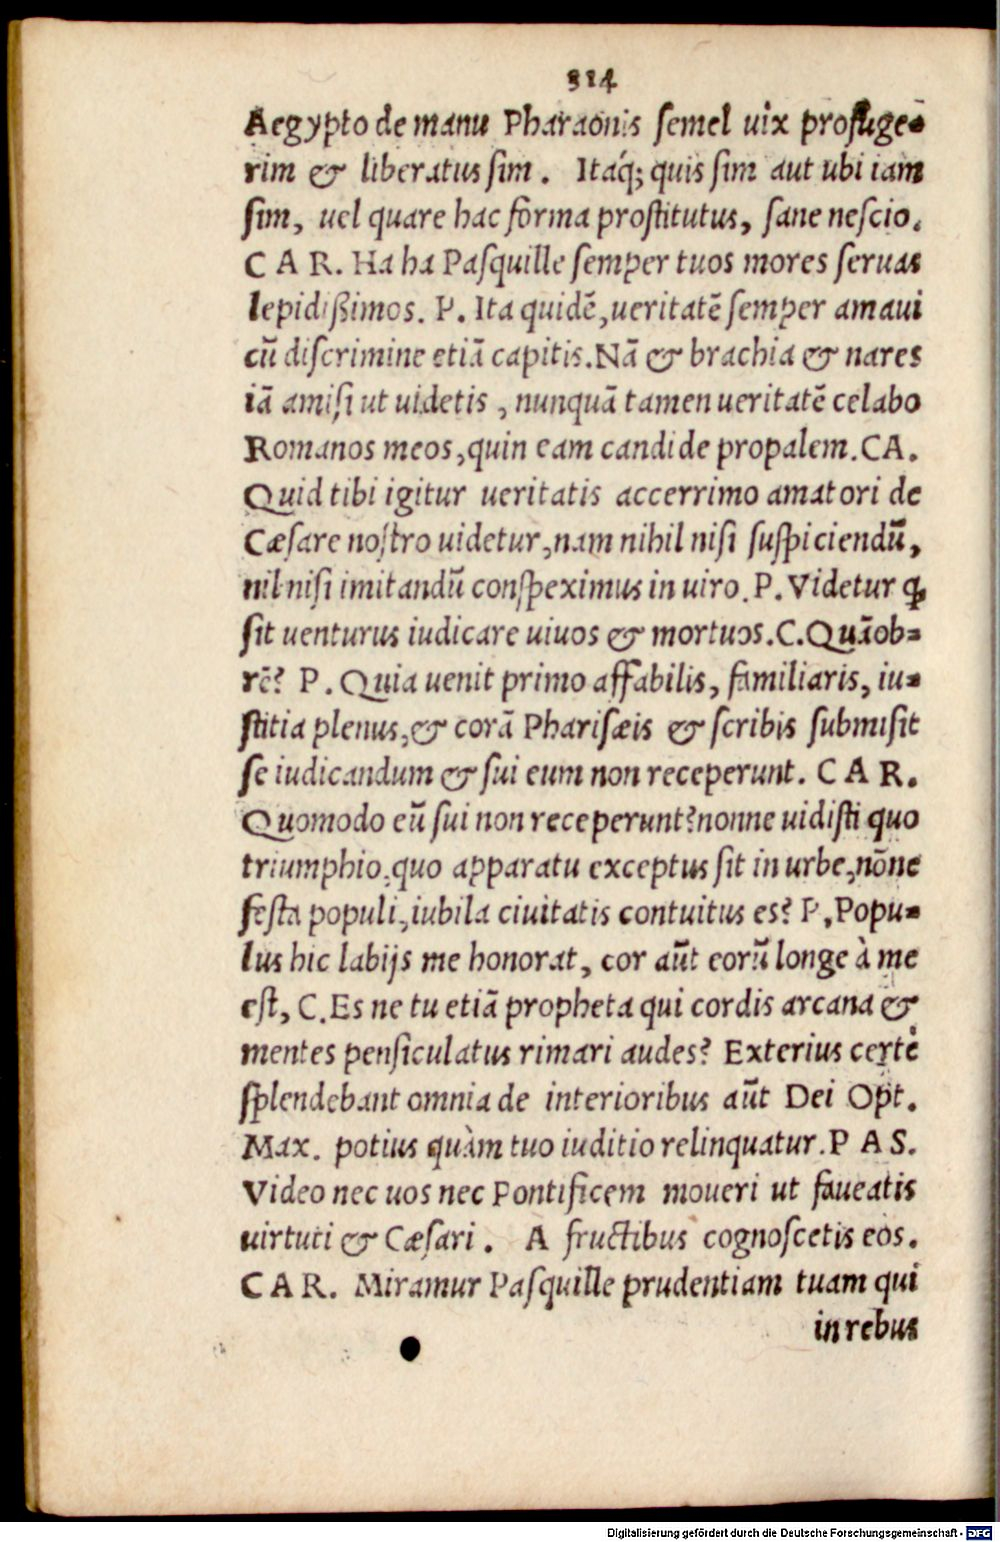 314
Aegypto de manu Pharaonis ſemel uix profuge⸗
rim & liberatus ſim. Itáq; quis ſim aut ubi iam
ſim, uel quare hac forma proſtitutus, ſane neſcio.
C A R. Ha ha Paſquille ſemper tuos mores ſeruas
lepidiſsimos. P. Ita quidē, ueritatē ſemper amaui
cū diſcrimine etiā capitis. Nā & brachia & nares
iā amiſi ut uidetis, nunquā tamen ueritatē celabo
Romanos meos, quin eam candide propalem. CA.
Quid tibi igitur ueritatis accerrimo amatori de
Cæſare noſtro uidetur, nam nihil niſi ſuſpiciendū,
nil niſi imitandū conſpeximus in uiro. P. Videtur ꝙ
ſit uenturus iudicare uiuos & mortuos. C. Quāob⸗
rē? P. Quia uenit primo affabilis, familiaris, iu⸗
ſtitia plenus, & corā Phariſæis & ſcribis ſubmiſit
ſe iudicandum & ſui eum non receperunt. C A R.
Quomodo eū ſui non receperunt? nonne uidiſti quo
triumphio, quo apparatu exceptus ſit in urbe, nōne
feſta populi, iubila ciuitatis contuitus es? P. Popu⸗
lus hic labijs me honorat, cor aūt eorū longe à me
eſt, C. Es ne tu etiā propheta qui cordis arcana &
mentes penſiculatus rimari audes? Exterius certè
ſplendebant omnia de interioribus aūt Dei Opt.
Max. potius quàm tuo iuditio relinquatur. P A S.
Video nec uos nec Pontificem moueri ut faueatis
uirtuti & Cæſari. A fructibus cognoſcetis eos.
C A R. Miramur Paſquille prudentiam tuam qui
in rebus
Digitalisierung gefördert durch die Deutsche Forschungsgemeinschaft - DFG